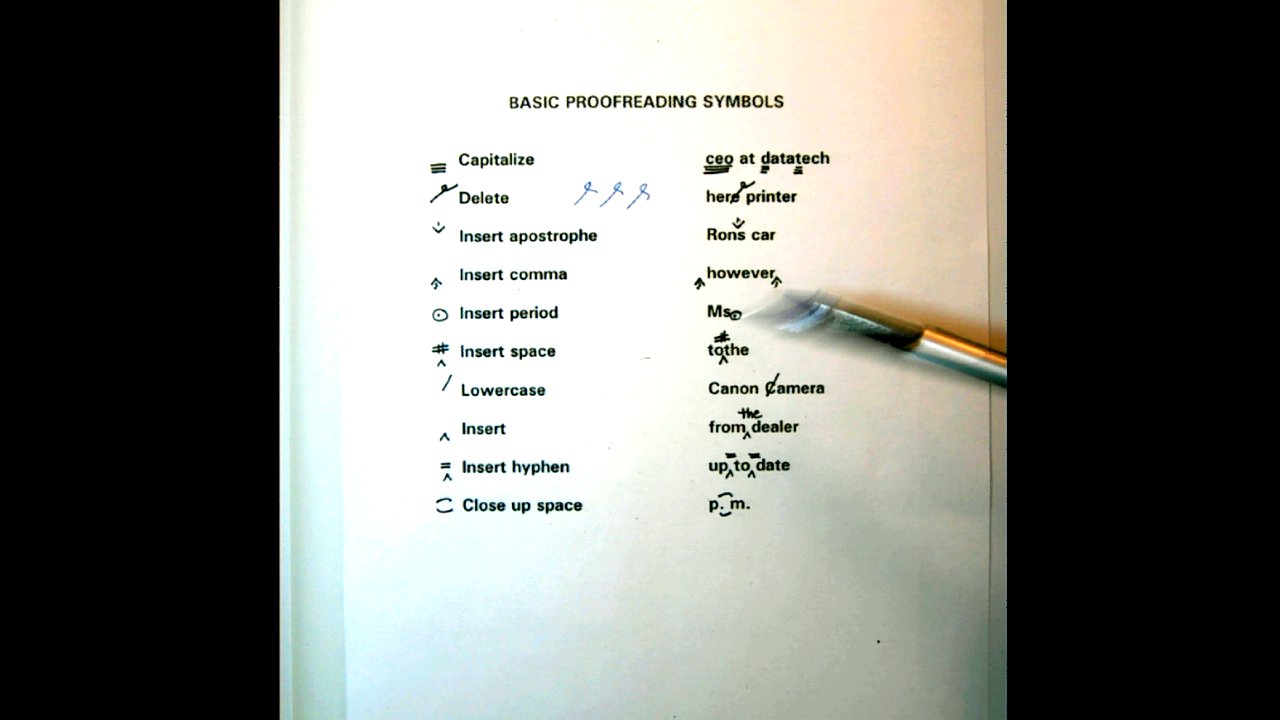 BASIC PROOFREADING SYMBOLS
Capitalize ceo at datatech
Delete here printer
Insert apostrophe Rons car
Insert comma however
Insert period Ms
# Insert space tothe
/ Lowercase Canon Camera
the
^ Insert from dealer
= Insert hyphen up to date
Close up space p. m.